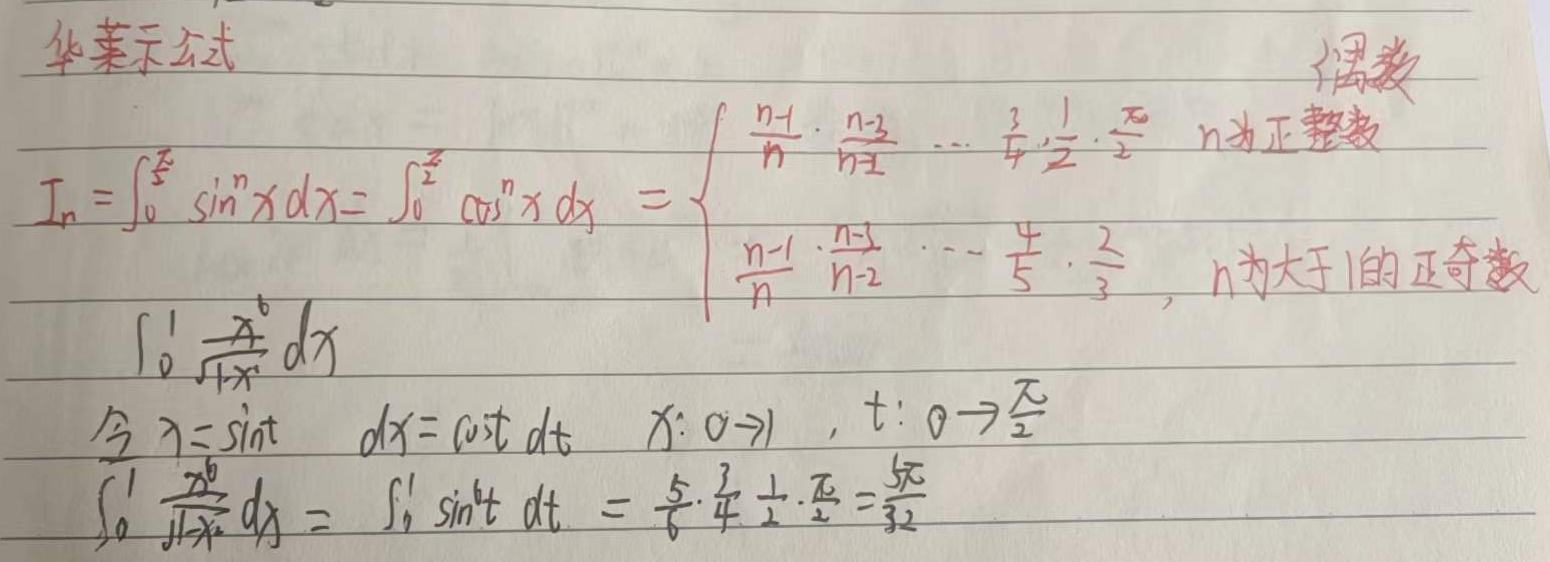 华莱示公式
偶数
I_n = ∫_0^{π/2} sin^n x dx = ∫_0^{π/2} cos^n x dx = { (n-1)/n · (n-3)/(n-2) ··· 3/4 · 1/2 · π/2 n为正整数
(n-1)/n · (n-3)/(n-2) ··· 4/5 · 2/3 , n为大于1的正奇数
∫_0^1 x^6/√(1-x²) dx
令 x=sint dx=cost dt x: 0→1 , t: 0→π/2
∫_0^1 x^6/√(1-x²) dx = ∫_0^1 sin^6 t dt = 5/6 · 3/4 1/2 · π/2 = 5π/32